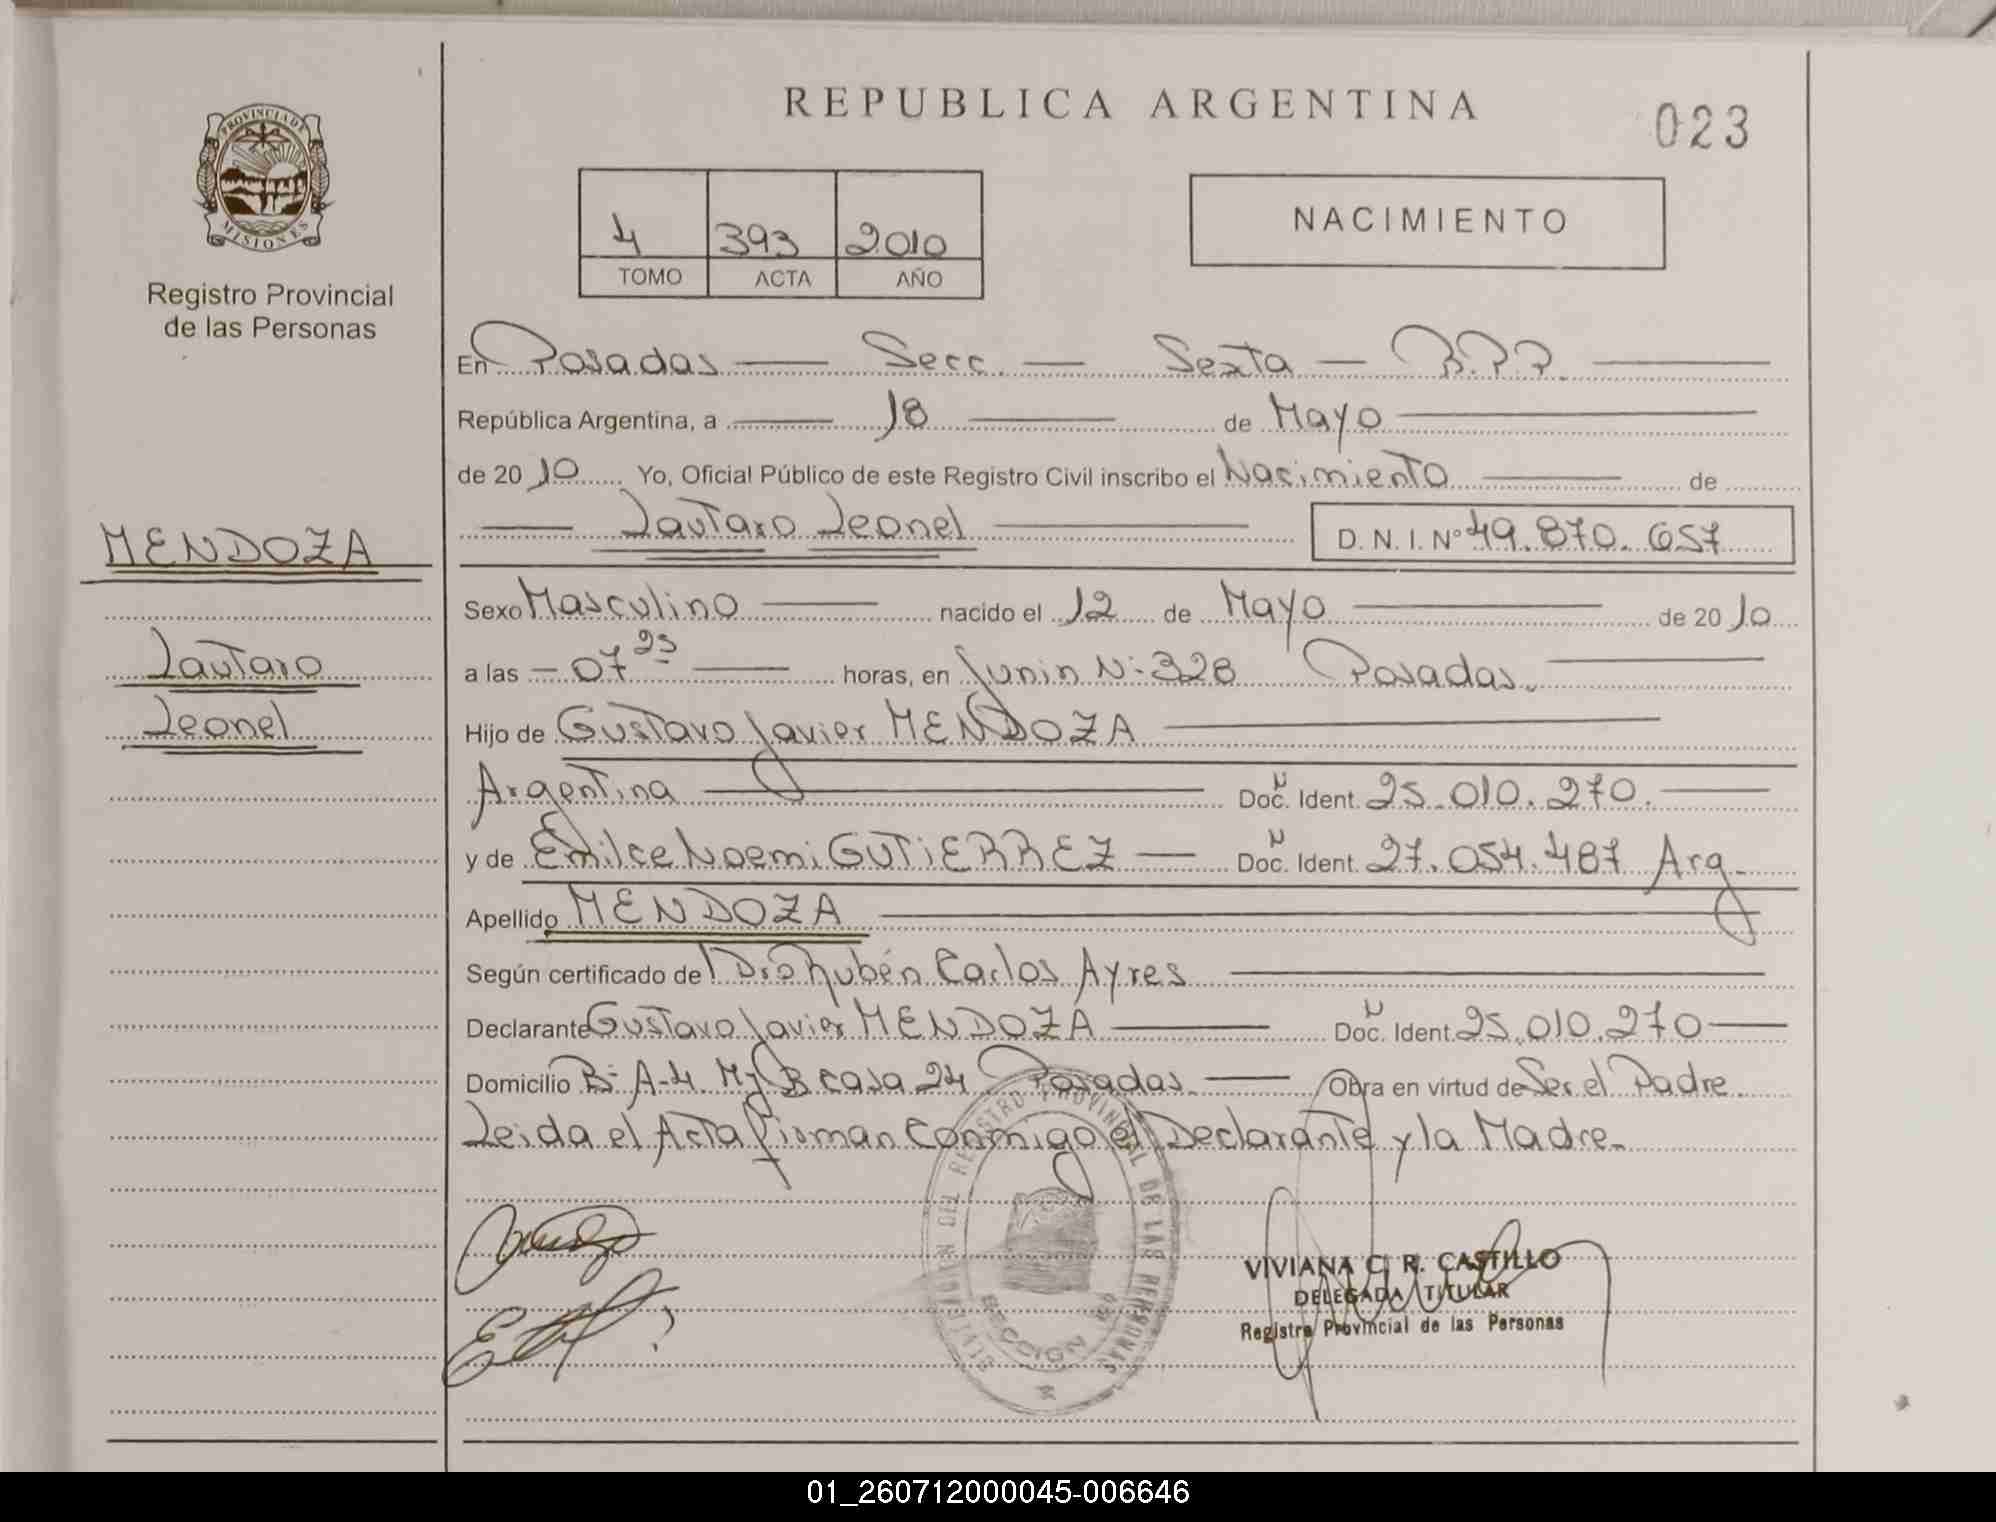 REPUBLICA ARGENTINA
023
PROVINCIA DE MISIONES
Registro Provincial
de las Personas
4 393 2010
TOMO ACTA AÑO
NACIMIENTO
En Posadas Secc. Sexta R.P.P.
República Argentina, a 18 de Mayo
de 20 10 Yo, Oficial Público de este Registro Civil inscribo el Nacimiento de
Lautaro Leonel D. N. I. Nº 49.870.657
MENDOZA
Lautaro
Leonel
Sexo Masculino nacido el 12 de Mayo de 20 10
a las 07 25 horas, en Junin Nº 328 Posadas.
Hijo de Gustavo Javier MENDOZA
Argentina Doc. N Ident. 25.010.270.
y de Emilce Noemi GUTIERREZ Doc. N Ident. 27.054.487 Arg
Apellido MENDOZA
Según certificado de Dr. Rubén Carlos Ayres
Declarante Gustavo Javier MENDOZA Doc. N Ident. 25.010.270
Domicilio Bº A-4 Mz B casa 24 Posadas. Obra en virtud de Ser el Padre
Leida el Acta firman Conmigo el Declarante y la Madre.
DEL REGISTRO PROVINCIAL DE LAS PERSONAS
SECCION
VIVIANA C. R. CASTILLO
DELEGADA TITULAR
Registro Provincial de las Personas
01_260712000045-006646